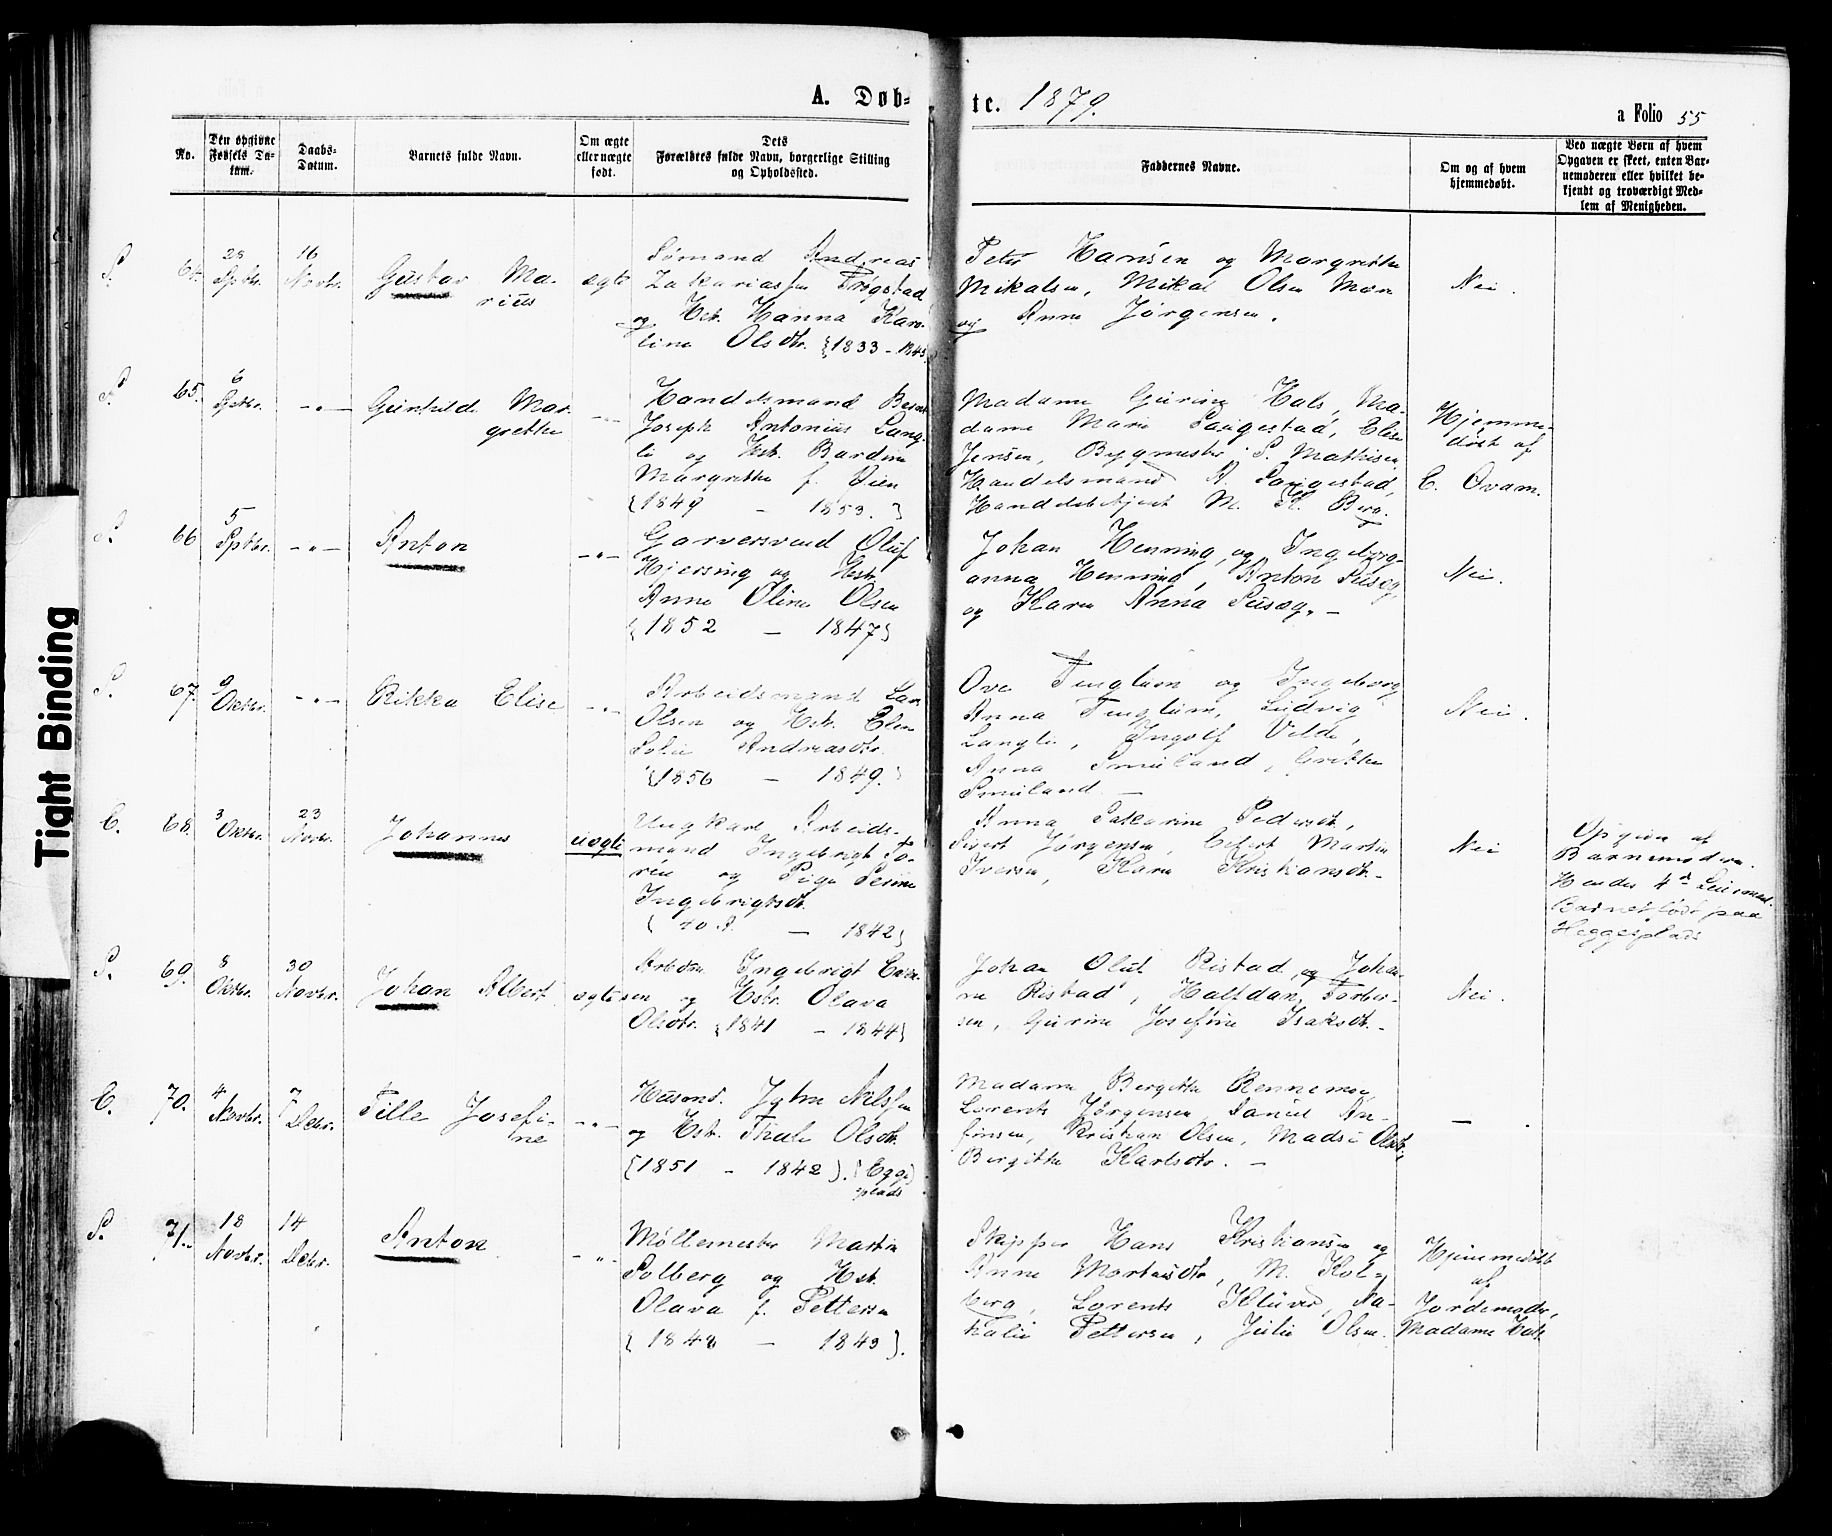 A. Døb-
te. 1879.
a Folio 55
No.
Den opgivne
Fødsels Da-
tum.
Daabs-
Datum.
Barnets fulde Navn.
Om ægte
eller uægte
født.
Dets
Forældres fulde Navn, borgerlige Stilling
og Opholdssted.
Faddernes Navne.
Om og af hvem
hjemmedøbt.
Ved uægte Børn af hvem
Opgaven er skeet, enten Bar-
nemoderen eller hvilket be-
kjendt og troværdigt Med-
lem af Menigheden.
S. 64.
28
Sptbr.
16
Novbr.
Gustav Ma-
rius
ægte
Sømand Andreas
Zakariassen
og Hst. Hanna Karo-
line Olsdtr. {1833 - 1843
Peter Hansen og Margrethe
Mikalsen, Mikal Olsen Moen
og Anne Jørgensen.
Nei.
S. 65.
6
Sptbr.
-"-
Gunhilde Mar-
grethe
-"-
Handelsmand Bernt
Joseph Antonius Lang-
li og Hst. Bardine
Margrethe f. Øien
{1849 - 1853.}
Madame Gurine Hals, Ma-
dame Marie Saugestad, Elise
Jensen, Bygmester S. Mathisen,
Handelsmand A. Saugestad,
Handelsbetjent M. K. Berg.
Hjemme-
døbt af
C. Qvam.
S. 66
5
Sptbr.
-"-
Anton
-"-
Garversvend Oluf
Hjersing og Hst.
Anne Oline Olsen
{1852 - 1847}
Johan Henning og Ingeborg-
anna Henning, Anton Suseg,
og Karen Anna Suseg. -
Nei.
S. 67.
9
Oktbr.
-"-
Rikka Elise
-"-
Arbeidsmand Lars
Olsen og Hst. Elen
Sofie Andreasdtr.
{1856 - 1849.}
Ove Fuglum og Ingeborg
Anna Fuglum, Ludvig
Langli, Ingolf Velde,
Anna Smuland, Grethe
Smuland -
Nei.
E. 68.
3
Oktbr.
23
Novbr.
Johannes
uægte
Ungkarl Arbeids-
mand Ingebrigt To-
og Pige
Ingebrigtsdtr.
{40 A. - 1842}
Anna Katarine Pedersdt,
Sivert Jørgensen, Edvert Martin
Iversen, Karen Kristiansdt. -
Nei
Opgiven af
Barnemoderen.
Hendes 4de Leiermaal.
Barnet født paa
Heggesplads
S. 69.
8
Oktbr.
30
Novbr.
Johan Albert
ægte
Arbdm. Ingebrigt
sen og Hstr. Olava
Olsdtr. {1841 - 1844}
Johan Oluf Ristad og Johan-
ne Ristad, Halfdan Torber-
sen, Gurine Josefine Isaksdt. -
Nei.
E. 70.
4
Novbr.
7
Decbr.
Tille Josefi-
ne
-"-
Husmd. John Nilssen
og Hst. Thale Olsdt.
{1851 - 1842}. (Egge
plads
Madame Bergitte Rennemo,
Lorents Jørgensen, Daniel An-
finsen, Kristian Olsen, Madsi Olsdtr,
Bergitte Karlsdtr. -
-
S. 71.
18
Novbr.
14
Decbr.
Anton
-"-
Møllemester Martin
Solberg og Hst.
Olava f. Pettersen
{1848 - 1843}.
Skipper Hans Kristiansen og
Anne Martinsdtr, M. Kol-
berg, Lorents Klüver, Na-
talie Pettersen, Julie Olsen.
Hjemmedøbt
af
Jordemoder,
Madame
Tight Binding